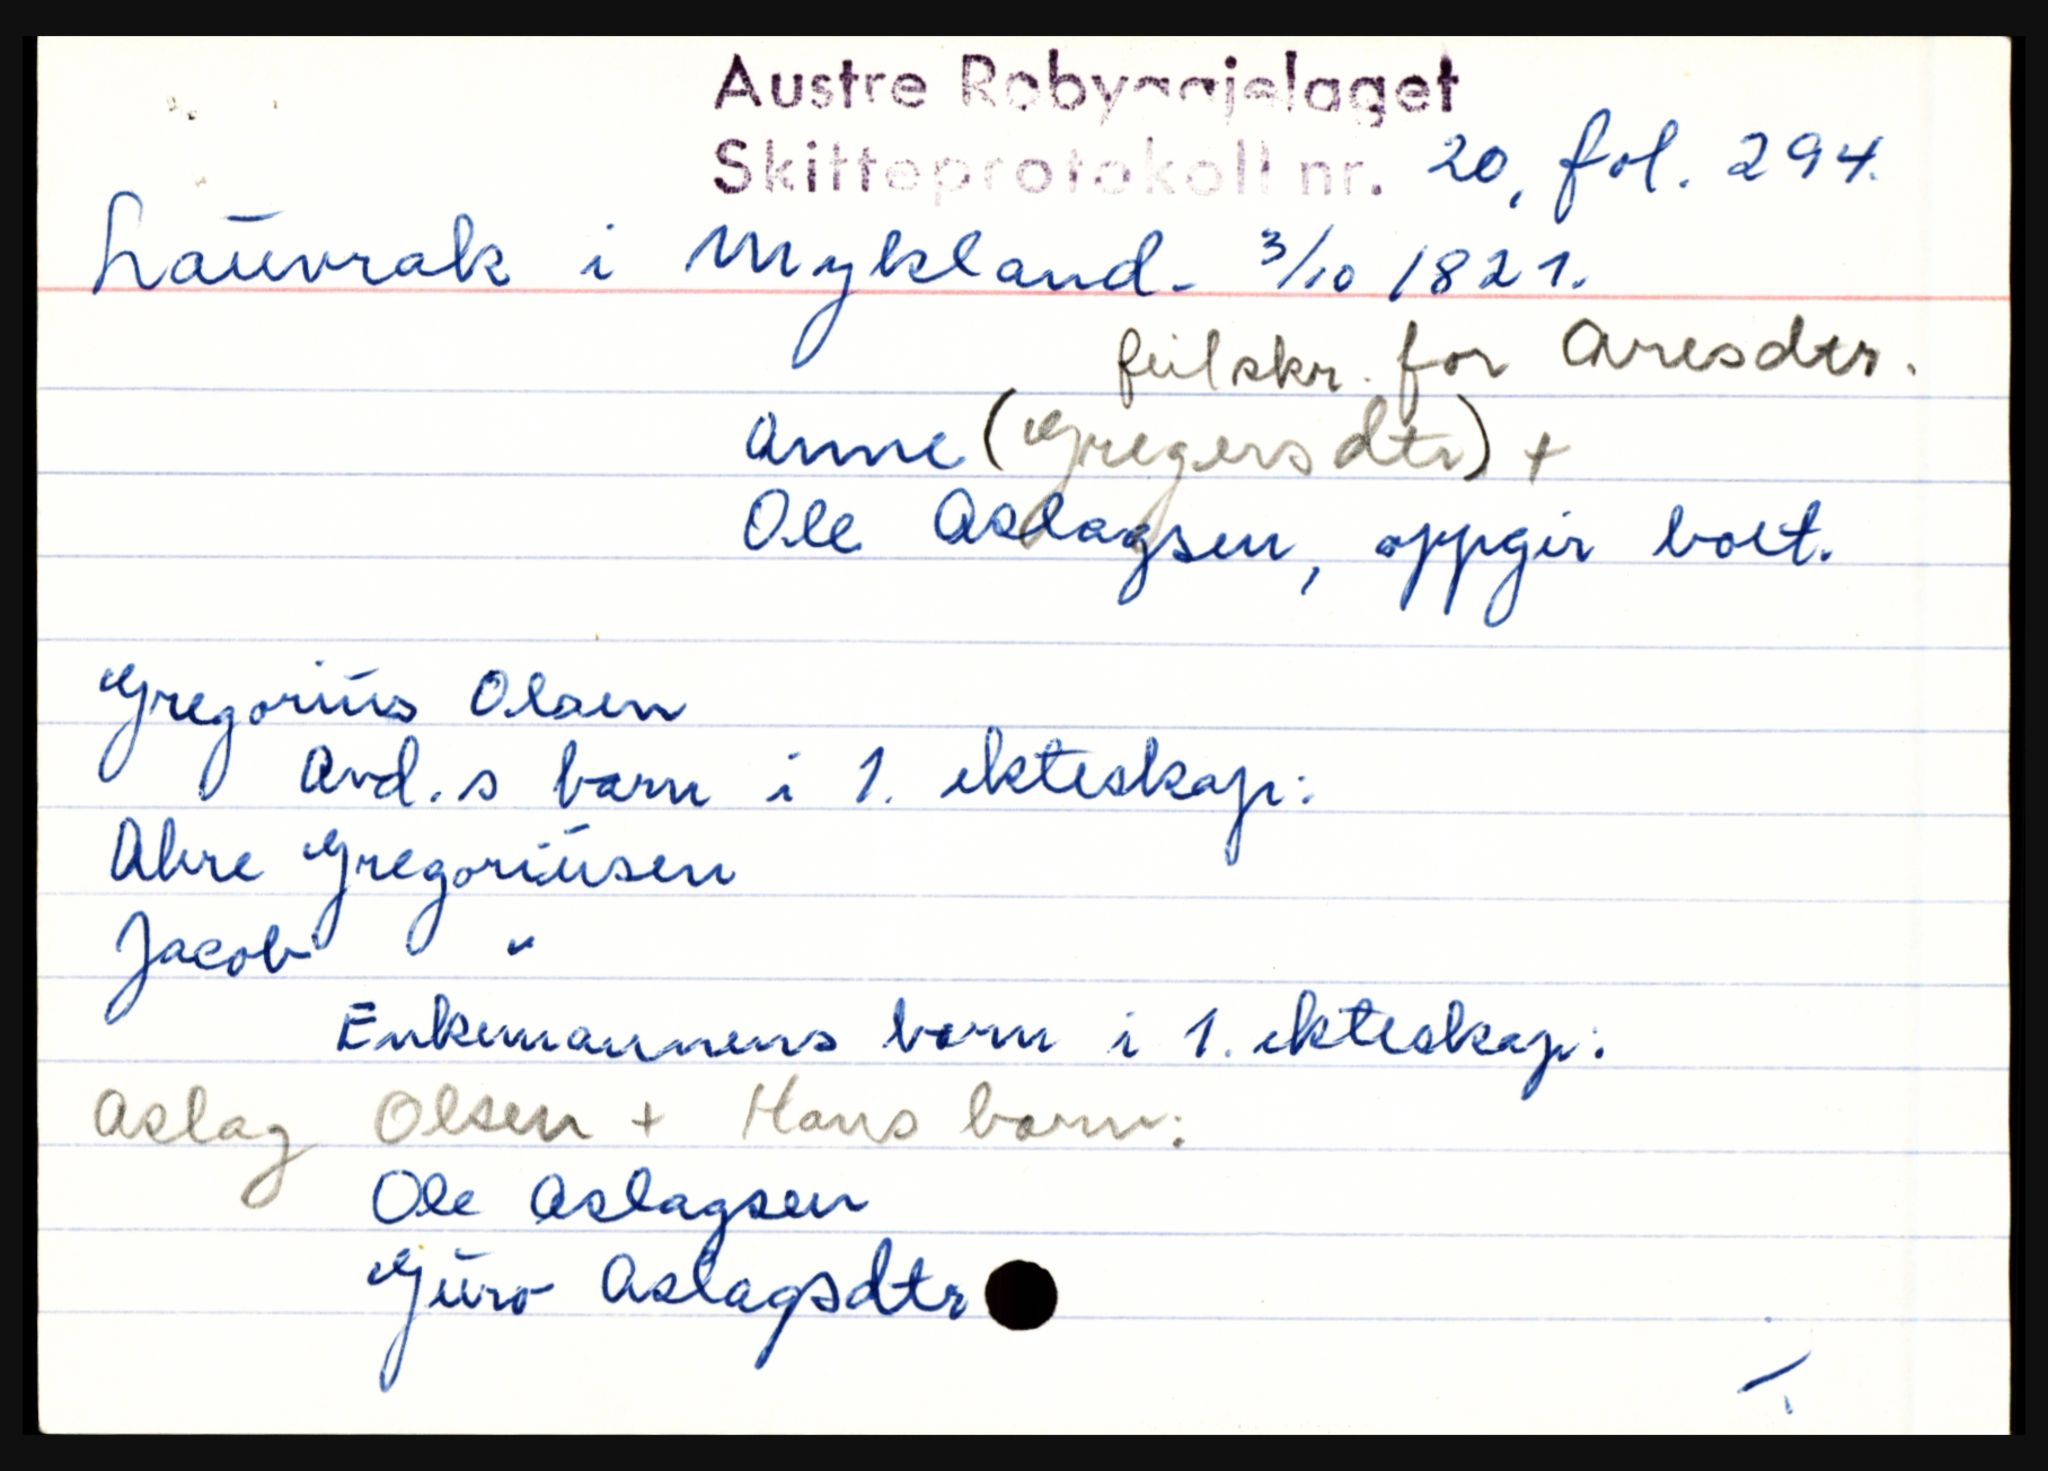 Austre Robyggjelaget
Skifteprotokoll nr. 20, fol. 294.
Lauvrak i Mykland. 3/10 1821.
feilskr. for Aresdtr.
Anne (Gregersdtr) +
Ole Aslagsen, oppgir boet.
Gregorius Olsen
Avd.s barn i 1. ekteskap:
Ahre Gregoriusen
Jacob "
Enkemannens barn i 1. ekteskap:
Aslag Olsen + Hans barn:
Ole Aslagsen
Guro Aslagsdtr